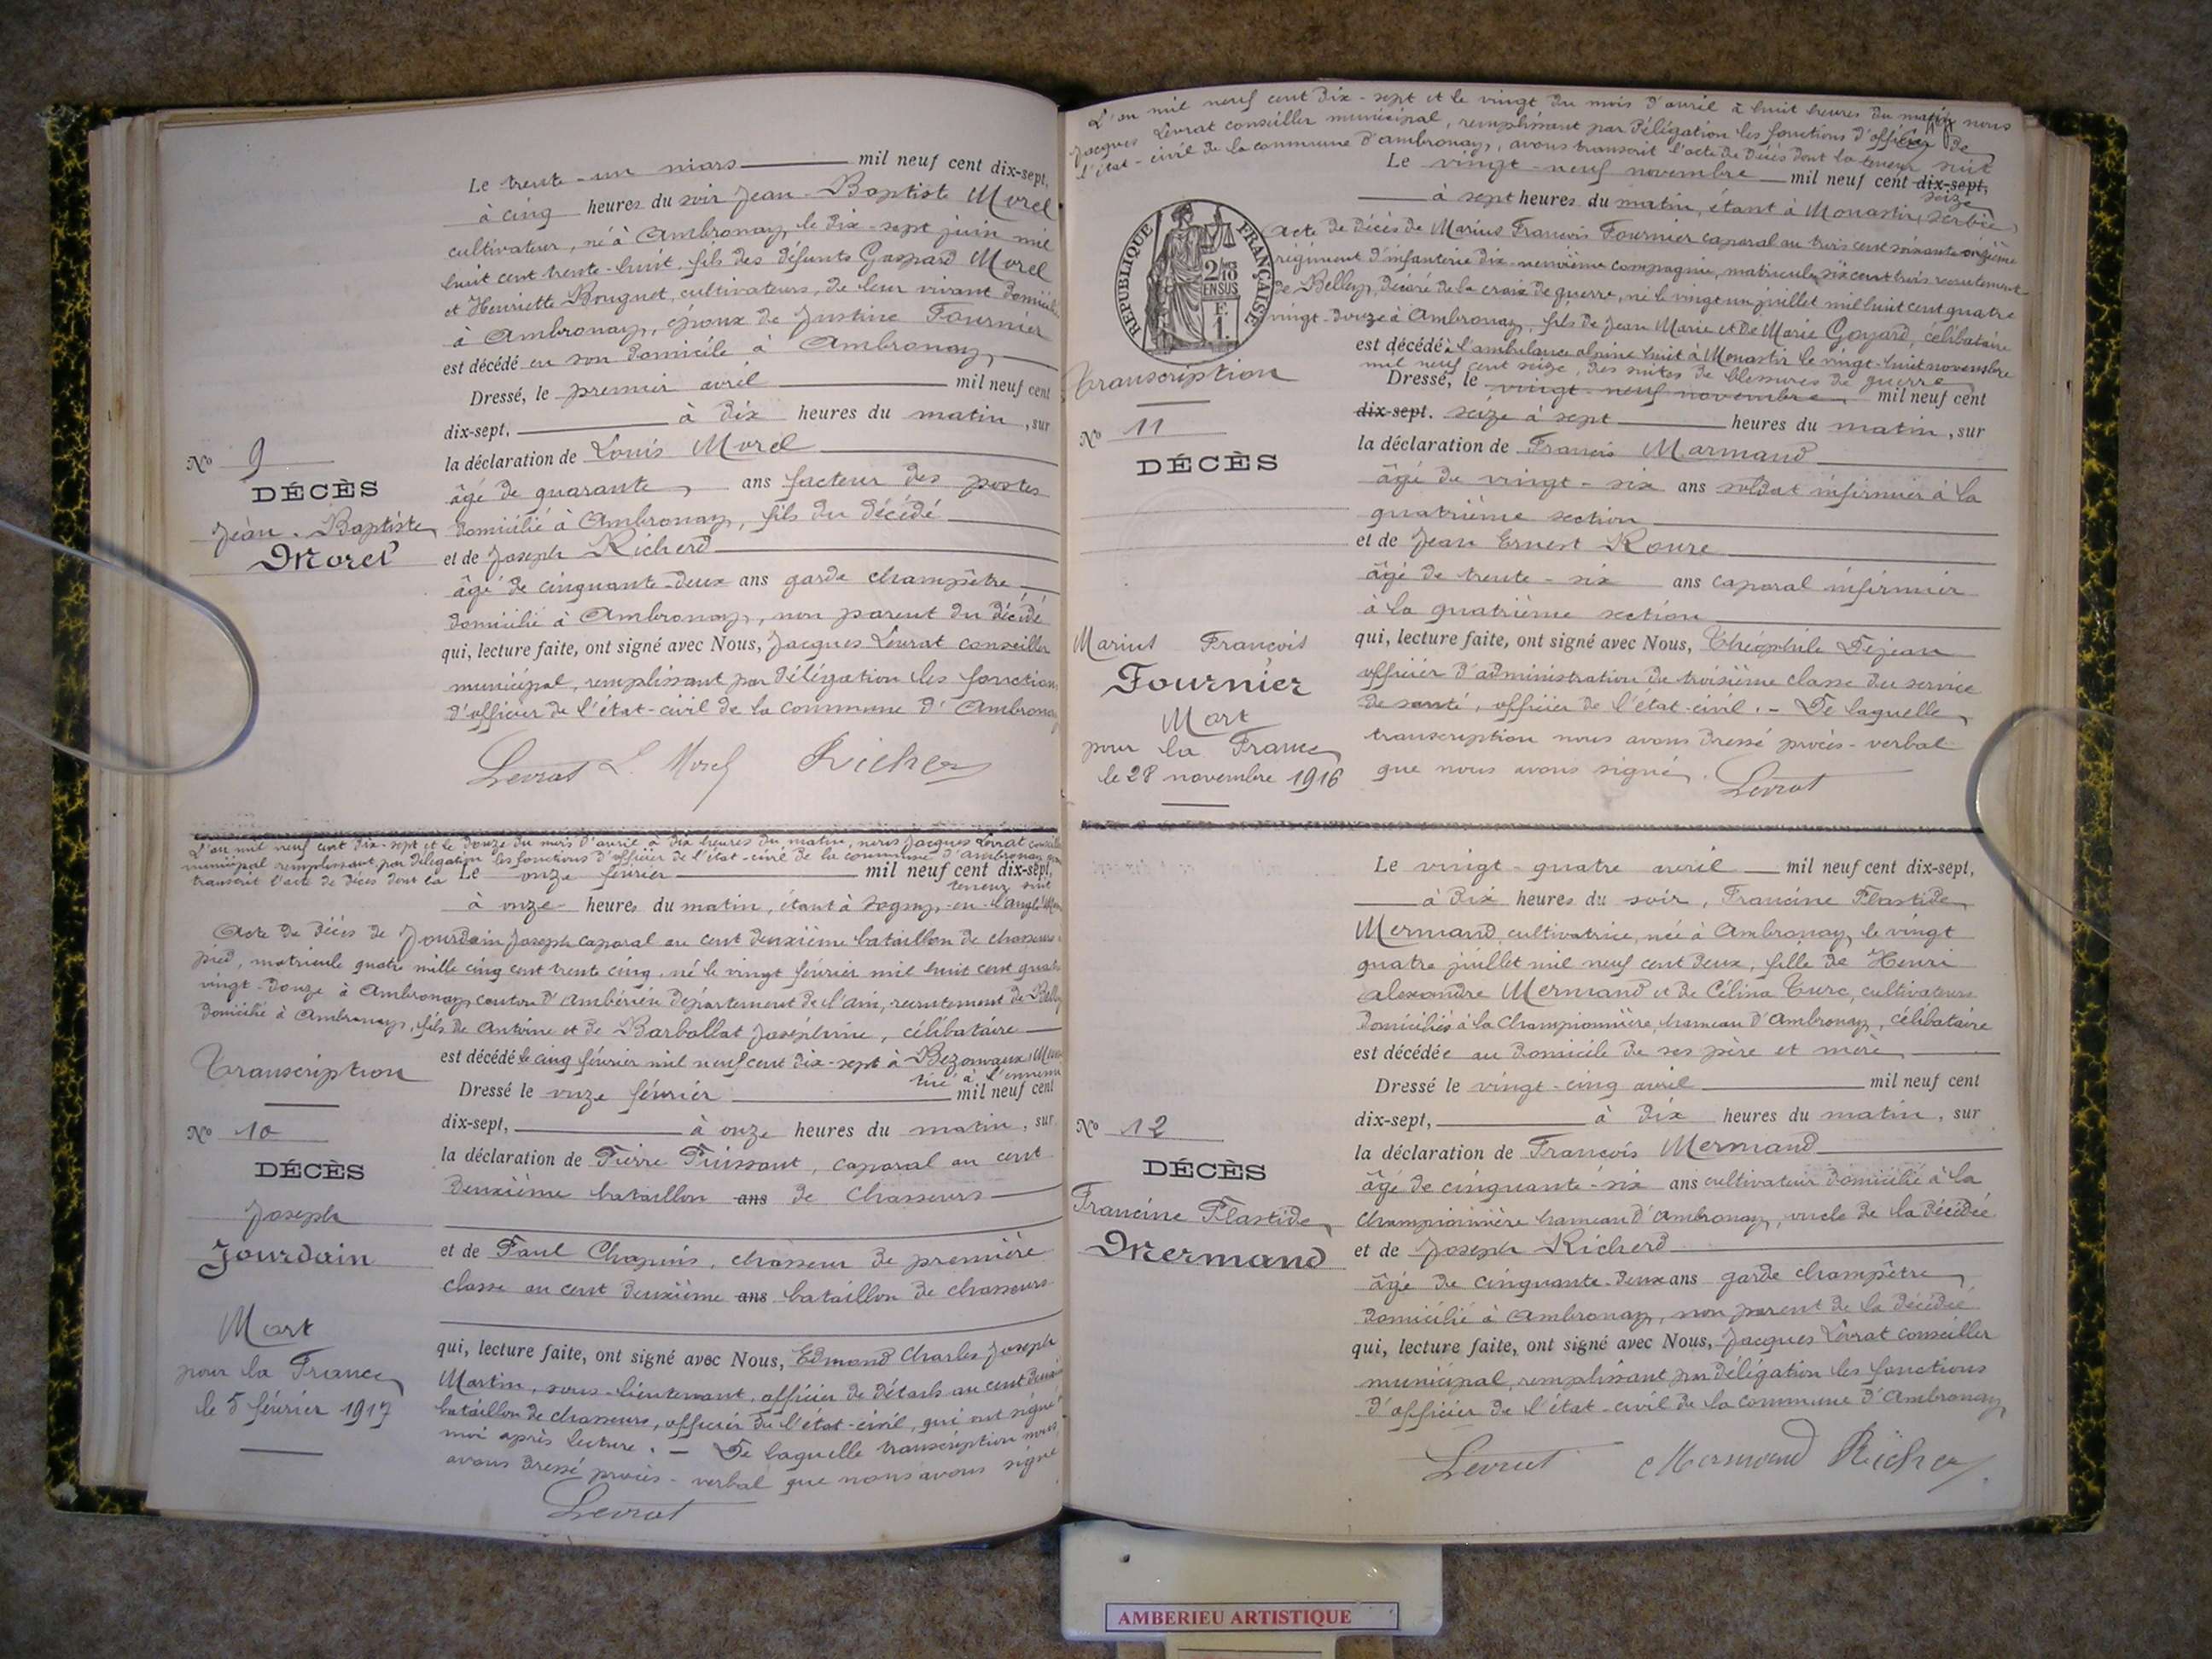 Le trente-un mars mil neuf cent dix-sept,
à cinq heures du soir Jean-Baptiste Morel
cultivateur, né à Ambronay, le dix-sept juin mil
huit cent trente-huit, fils des défunts Gaspard Morel
et Henriette Bouguet, cultivateurs, de leur vivant domiciliés
à Ambronay, époux de Justine Fournier
est décédé en son domicile à Ambronay,
Dressé, le premier avril mil neuf cent
dix-sept, à dix heures du matin, sur
la déclaration de Louis Morel
âgé de quarante, ans facteur des postes
domicilié à Ambronay, fils du décédé
et de Joseph Richerd
âgé de cinquante-deux ans garde champêtre
domicilié à Ambronay, non parent du décédé
qui, lecture faite, ont signé avec Nous, Jacques Levrat conseiller
municipal, remplissant par délégation les fonctions
d'officier de l'état-civil de la commune d'Ambronay
Levrat L. Morel Richerd
No 9
DÉCÈS
Jean-Baptiste
Morel
L'an mil neuf cent dix-sept et le douze du mois d'avril à dix heures du matin, nous Jacques Levrat conseiller
municipal remplissant par délégation les fonctions d'officier de l'état-civil de la commune d'Ambronay
transcrit l'acte de décès dont la teneur suit
Le onze février mil neuf cent dix-sept,
à onze heures du matin, étant à
Acte de décès de Jourdain Joseph caporal au cent deuxième bataillon de chasseurs à
pied, matricule quatre mille cinq cent trente cinq, né le vingt février mil huit cent quatre
vingt-douze à Ambronay, canton d'Ambérieu département de l'ain, recrutement de Belley
domicilié à Ambronay, fils de Antoine et de Barbollat Joséphine, célibataire
est décédé le cinq février mil neuf cent dix-sept à Bezonvaux (Meuse
tué à l'ennemi
Dressé le onze février mil neuf cent
dix-sept, à onze heures du matin, sur
la déclaration de Pierre Puissant, caporal au cent
deuxième bataillon ans de Chasseurs
et de Paul Chapuis, chasseur de première
classe au cent deuxième ans bataillon de chasseurs
qui, lecture faite, ont signé avec Nous, Edmond Charles Joseph
Martin, sous-lieutenant, officier de détails au cent deuxième
bataillon de chasseurs, officier de l'état-civil, qui ont signé
moi après lecture. - De laquelle transcription nous
avons dressé procès-verbal que nous avons signé
Levrat
Transcription
No 10
DÉCÈS
Joseph
Jourdain
Mort
pour la France
le 5 février 1917
L'an mil neuf cent dix-sept et le vingt du mois d'avril à huit heures du matin nous
Jacques Levrat conseiller municipal, remplissant par délégation les fonctions d'officier de
l'état-civil de la commune d'Ambronay, avons transcrit l'acte de décès dont la teneur suit
Le vingt-neuf novembre mil neuf cent dix-sept,
seize
à sept heures du matin, étant à Monastir (Serbie)
Acte de décès de Marius François Fournier caporal au trois cent soixante onzième
régiment d'infanterie dix-neuvième compagnie, matricule six cent trois recrutement
de Belley, décoré de la croix de guerre, né le vingt un juillet mil huit cent quatre
vingt-douze à Ambronay, fils de Jean Marie et de Marie Goyard, célibataire
est décédé à l'ambulance alpine huit à Monastir le vingt-huit novembre
mil neuf cent seize, des suites de blessures de guerre
Dressé, le vingt-neuf novembre mil neuf cent
dix-sept. seize à sept heures du matin, sur
la déclaration de Francis Marmand
âgé de vingt-six ans soldat infirmier à la
quatrième section
et de Jean Ernest Roure
âgé de trente-six ans caporal infirmier
à la quatrième section
qui, lecture faite, ont signé avec Nous, Théophile Dejean
officier d'administration de troisième classe du service
de santé, officier de l'état-civil. - De laquelle
transcription nous avons dressé procès-verbal
que nous avons signé.
Levrat
RÉPUBLIQUE FRANÇAISE
2/10
EN SUS
F.
1.
Transcription
No 11
DÉCÈS
Marius François
Fournier
Mort
pour la France
le 28 novembre 1916
Le vingt-quatre avril mil neuf cent dix-sept,
à dix heures du soir, Francine Plastide
Mermand, cultivatrice, née à Ambronay, le vingt
quatre juillet mil neuf cent deux, fille de Henri
Alexandre Mermand et de Célina Turc, cultivateurs
domiciliés à la Championnière, hameau d'Ambronay, célibataire
est décédée au domicile de ses père et mère
Dressé le vingt-cinq avril mil neuf cent
dix-sept, à dix heures du matin, sur
la déclaration de François Mermand
âgé de cinquante-six ans cultivateur domicilié à la
Championnière hameau d'Ambronay, oncle de la décédée
et de Joseph Richerd
âgé de cinquante-deux ans garde champêtre
domicilié à Ambronay, non parent de la décédée
qui, lecture faite, ont signé avec Nous, Jacques Levrat conseiller
municipal, remplissant par délégation les fonctions
d'officier de l'état-civil de la commune d'Ambronay
Levrat Mermand Richerd
No 12
DÉCÈS
Francine Plastide
Mermand
AMBERIEU ARTISTIQUE